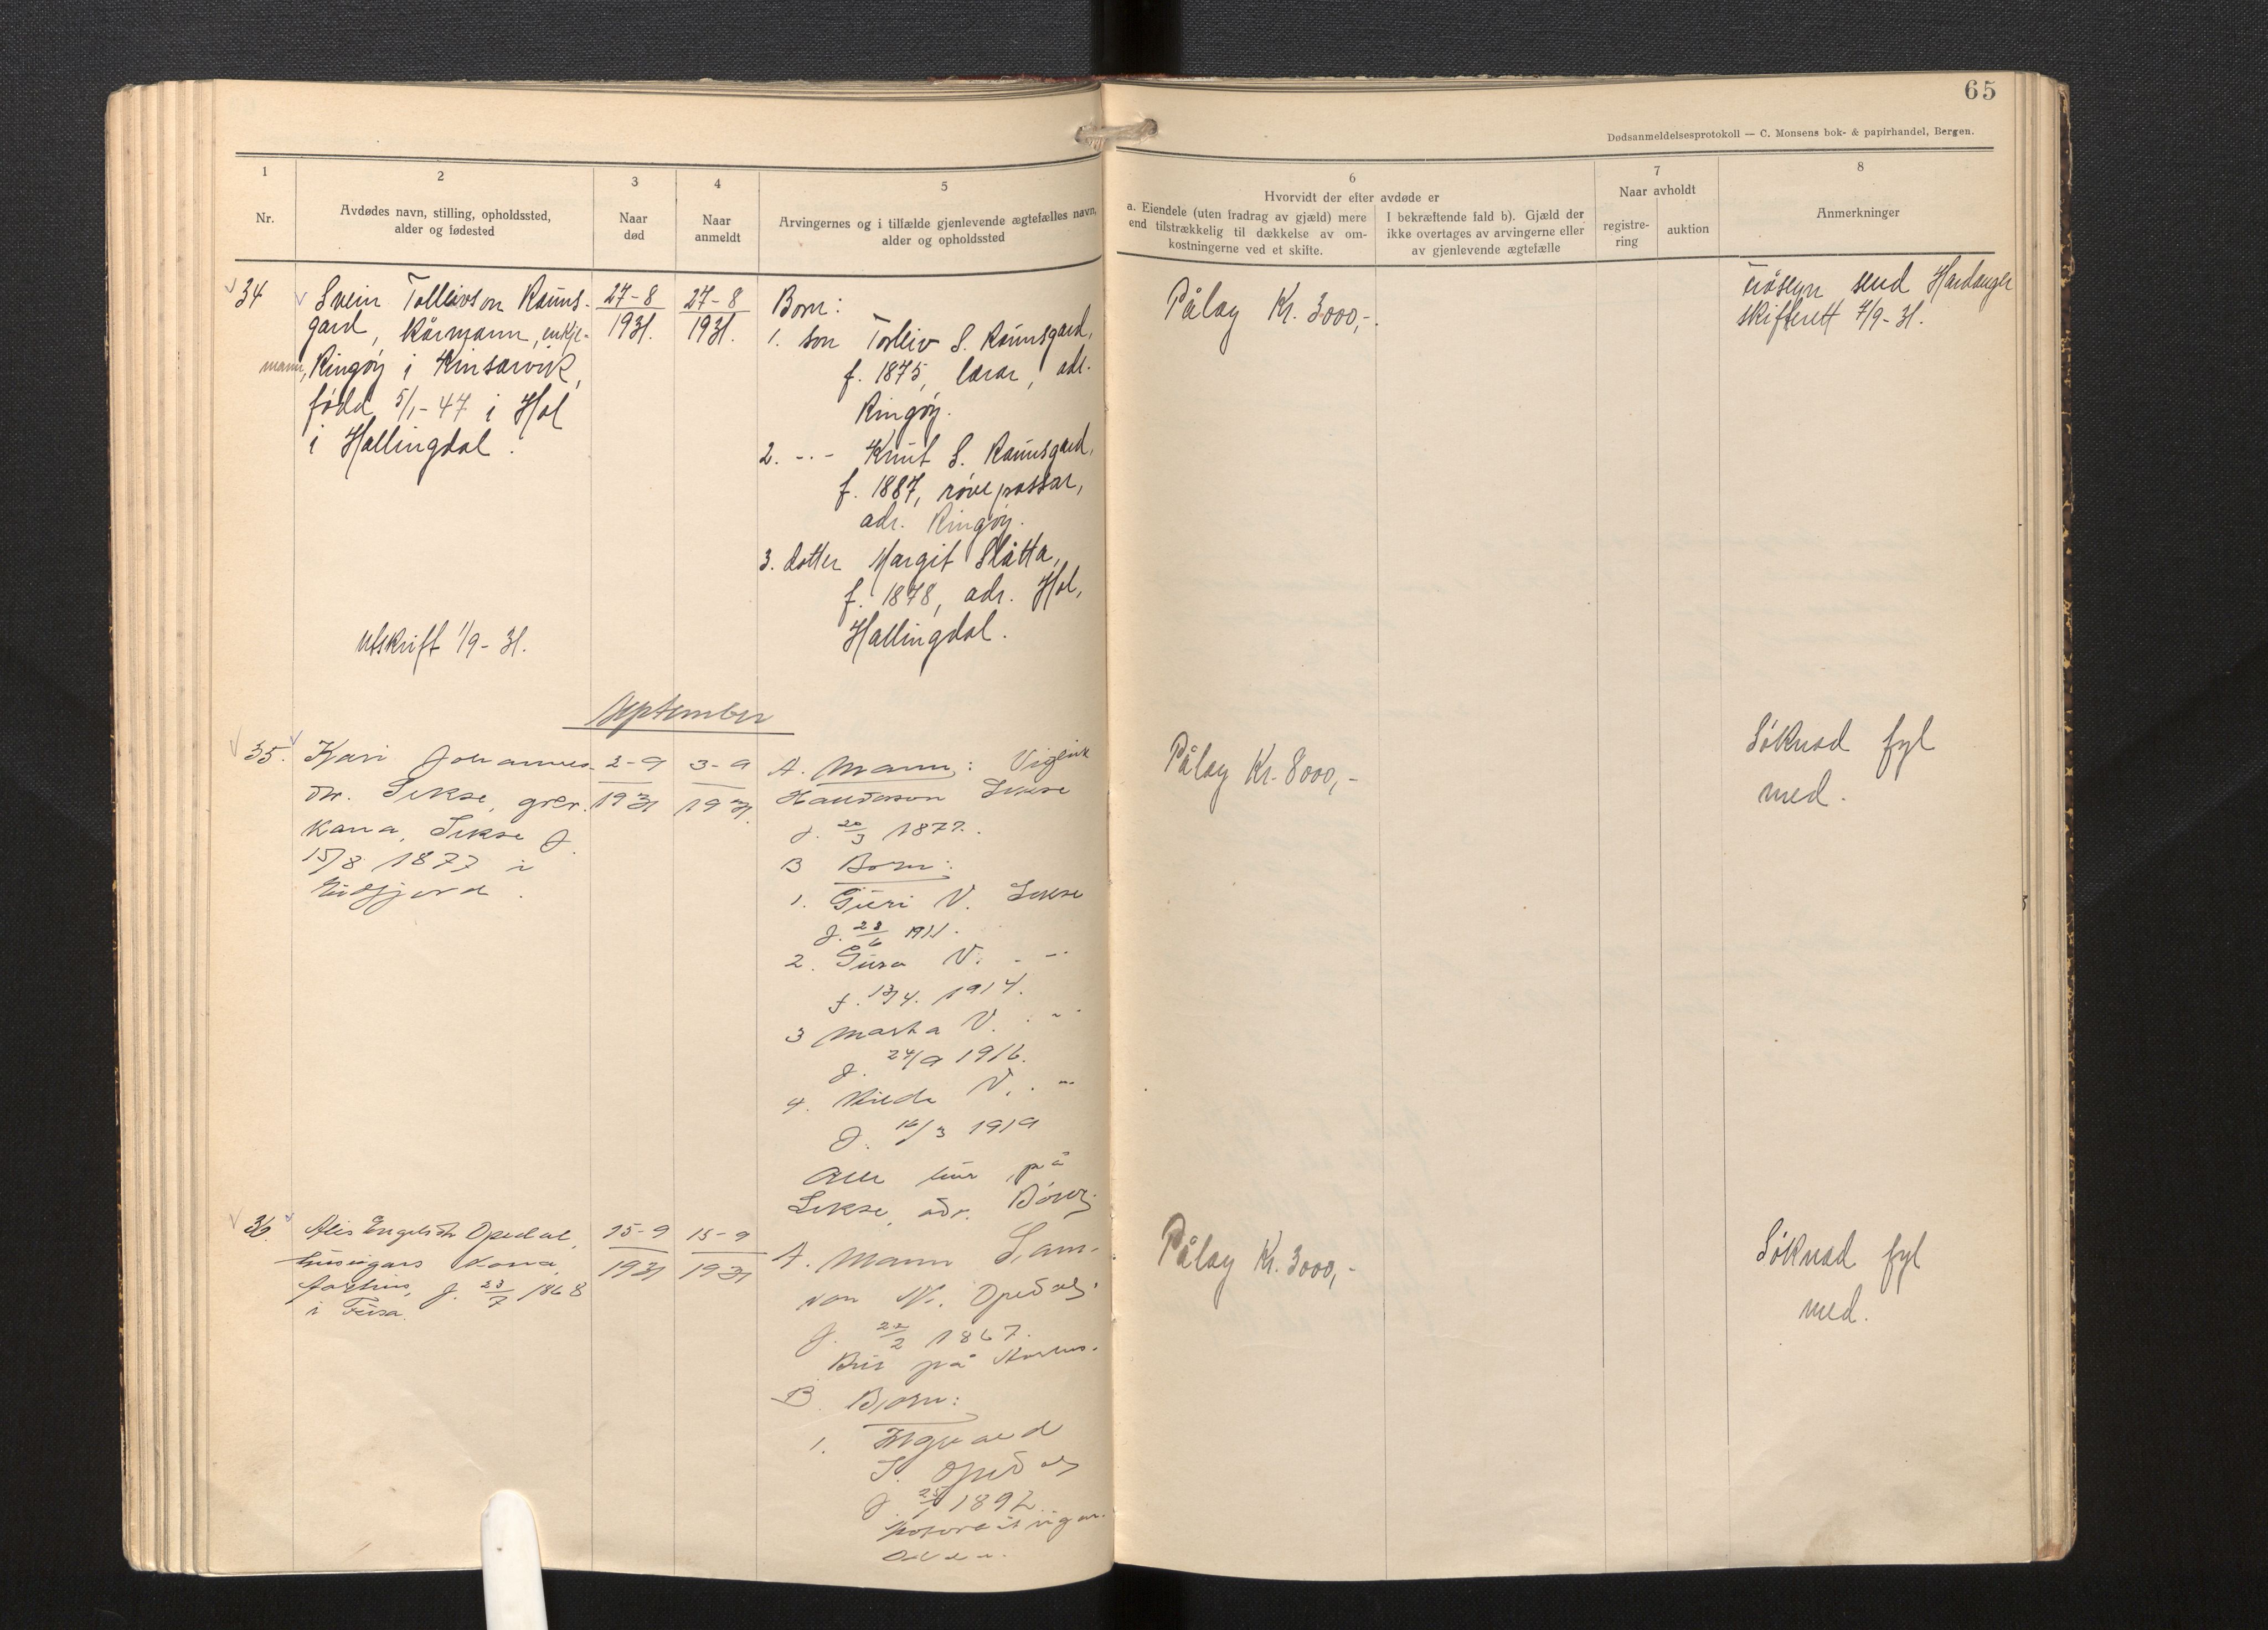 65
Dødsanmeldelsesprotokoll — C. Monsens bok- & papirhandel, Bergen.
1
Nr.
2
Avdødes navn, stilling, opholdssted,
alder og fødested
3
Naar
død
4
Naar
anmeldt
5
Arvingernes og i tilfælde gjenlevende ægtefælles navn,
alder og opholdssted
6
Hvorvidt der efter avdøde er
a. Eiendele (uten fradrag av gjæld) mere
end tilstrækkelig til dækkelse av om-
kostningerne ved et skifte.
I bekræftende fald b). Gjæld der
ikke overtages av arvingerne eller
av gjenlevende ægtefælle
7
Naar avholdt
registre-
ring
auktion
8
Anmerkninger
34
Svein Tolleivson Rauns-
gard, Kårmann, enkje-
mann, Ringøy i Kinsarvik,
fødd 5/1-47 i Hol
i Hallingdal.
utskrift 1/9-31.
27-8
1931.
27-8
1931.
Born:
1. son Torleiv S. Raunsgard,
f. 1875, lærar, adr.
Ringøy.
2. -"- Knut S. Raunsgard,
f. 1887,
adr. Ringøy.
3. dotter Margit Slåtta,
f. 1878, adr. Hol,
Hallingdal.
Pålag Kr. 3000,-.
send Hardanger
skifterett 4/9-31.
September
35.
Kari Johannes-
dtr. Sekse, gør.
kona, Sekse f.
15/8 1877 i
Eidfjord.
2-9
1931
3-9
1931.
A. Mann: Vigleik
Sekse
f. 20/3 1877.
B Born:
1. Guri V. Sekse
f. 28/6 1911.
2. Gura V. - " -
f. 13/4. 1914.
3 Marta V. - " -
f. 24/9 1916.
4. V. - " -
f. 16/3 1919
Alle bur på
Sekse, adr. Børve.
Pålag Kr. 8000,-
Søknad fyl
med.
36.
Alis Engelsdtr Opedal,
huseigars kona,
f. 23/7 1868
i Fusa.
15-9
1931
15-9
1931
A. Mann Sam-
son Opedal,
f. 1867.
Bur på
B. Born:
1. Ingvald
S. Opedal
f. 1892
Odda.
Pålag Kr. 3000,-
Søknad fyl
med.